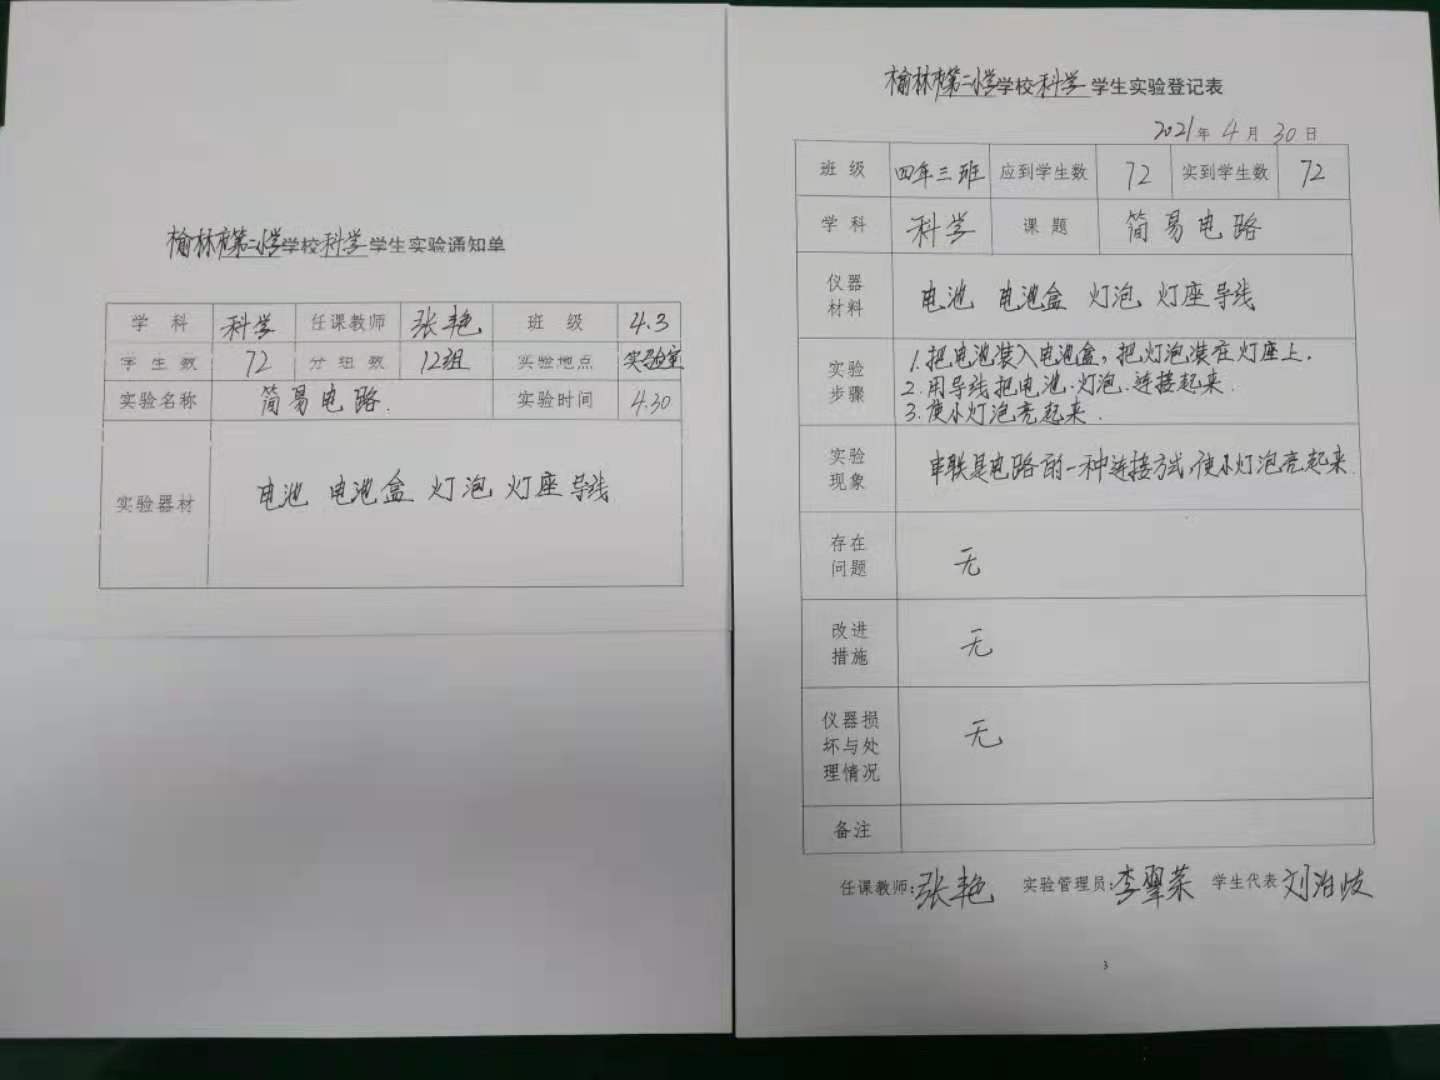 榆林市第二小学学校科学学生实验通知单
学 科 科学 任课教师 张艳 班 级 4.3
学生数 72 分组数 12组 实验地点 实验室
实验名称 简易电路. 实验时间 4.30
实验器材 电池 电池盒 灯泡 灯座 导线
榆林市第二小学学校科学学生实验登记表
2021年 4月 30日
班 级 四年三班 应到学生数 72 实到学生数 72
学 科 科学 课 题 简易电路
仪器
材料
电池 电池盒 灯泡 灯座 导线
实验
步骤
1.把电池装入电池盒,把灯泡装在灯座上.
2.用导线把电池.灯泡.连接起来.
3.使小灯泡亮起来.
实验
现象
串联是电路的一种连接方式,使小灯泡亮起来
存在
问题
无
改进
措施
无
仪器损
坏与处
理情况
无
备注
任课教师:张艳 实验管理员:李翠荣 学生代表 刘泊岐
3